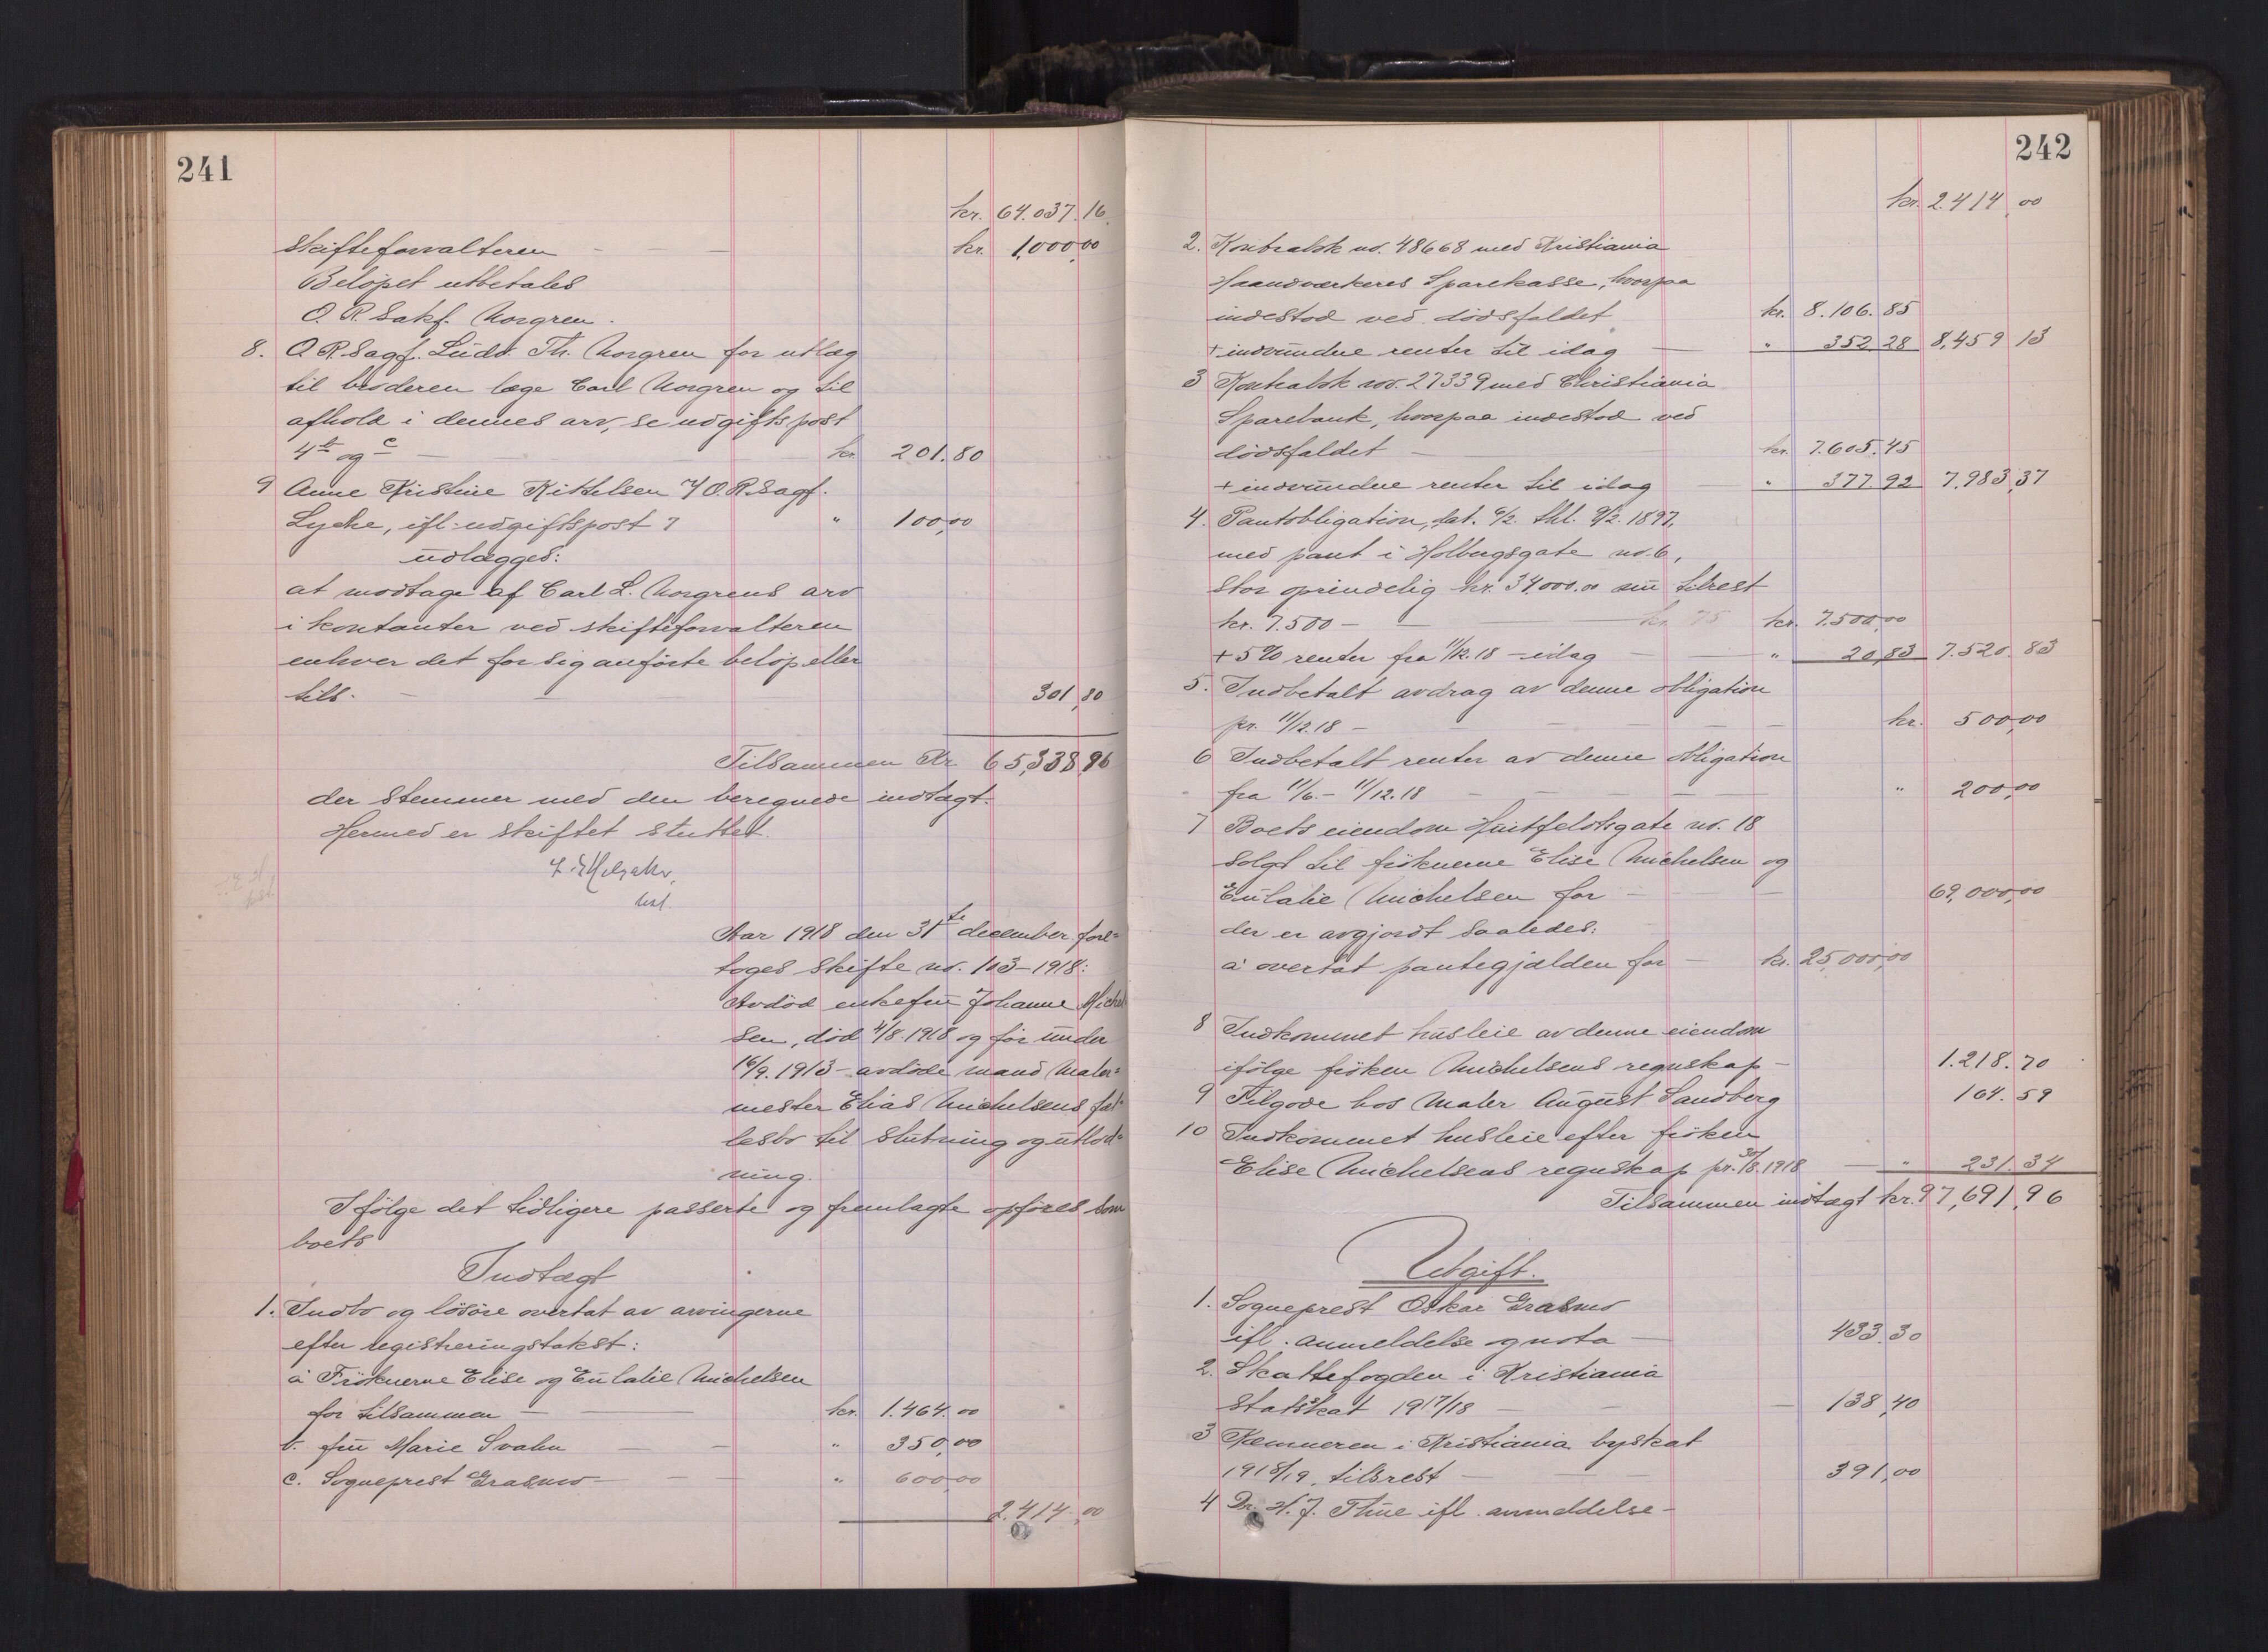 241
kr. 64.037.16
Skifteforvalteren - - kr. 1,000,00
Beløpet utbetales
O. R. Sakf. Norgren.
8. O R. Sagf. Ludv. Th. Norgren for utlæg
til broderen læge Carl Norgren og til
afhold i dennes arv, se udgiftspost
4 b og c - kr. 201.80
9 Anne Kristine Kittelsen v/ O. R. Sagf.
Lyche, ifl. udgiftspost 7 " 100,00
udlægges:
at modtage af Carl L. Norgrens arv
i kontanter ved skifteforvalteren
enhver det for sig anførte beløp eller
tils. - - 301,80
Tilsammen Kr. 65,338,96
der stemmer med den beregnede indtægt.
Hermed er skiftet sluttet.
Aar 1918 den 31te december fore=
toges skifte no. 103-1918:
Avdød enkefru Johanne Michel
sen, død 4/8.1918 og før under
16/9.1913 - avdøde mand Maler=
mester Elias Michelsens fæl=
lesbo til slutning og utlod=
ning.
Ifølge det tidligere passerte og fremlagte opføres som
boets
Indtægt
1. Indbo og løsøre overtat av arvingerne
efter registreringstakst:
a Frøknerne Elise og Eulalie Michelsen
for tilsammen - kr. 1.464.00
b. fru Marie Svahn - " 350,00
c. Sogneprest Grasmo - " 600,00
2.414,00
242
kr. 2.414,00
2. Kontrabok no. 48668 med Kristiania
Haandværkeres Sparekasse, hvorpaa
indestod ved dødsfaldet kr. 8.106.85
+ indvundne renter til idag - " 352 28 8,459 13
3 Kontrabok no. 27339 med Christiania
Sparebank, hvorpaa indestod ved
dødsfaldet - kr. 7.605.45
+ indvundne renter til idag - " 377.92 7,983,37
4. Pantobligation, dat. 6/2. thl. 9/2. 1897,
med pant i Holbergsgate no. 6,
stor oprindelig kr. 34,000.00 nu tilrest
kr. 7.500 - - kr. 7.500,00
+ 5% renter fra 11/12.18 - idag - " 20,83 7.520.83
5. Indbetalt avdrag av denne obligation
pr. 11/12.18 - kr. 500,00
6 Indbetalt renter av denne obligation
fra 11/6. - 11/12.18 - " 200,00
7 Boets eiendom Huitfeldtsgate no. 18
solgt til frøknerne Elise Michelsen og
Eulalie Michelsen for - 69,000,00
der er avgjordt saaledes:
a overtat pantegjælden for - kr. 25,000,00
8 Indkommet husleie av denne eiendom
ifølge frøken Michelsens regnskap - 1.218.70
9 Tilgode hos Maler August Sandberg 164.59
10 Indkommet husleie efter frøken
Elise Michelsens regnskap pr. 30/8.1918 - " 231.34
Tilsammen indtægt kr. 97,691,96
Utgift.
1. Sogneprest Oskar Grasmo
ifl. anmeldelse og nota - 433.30
2. Skattefogden i Kristiania
Statsskat 1917/18 - 138,40
3 Kæmneren i Kristiania byskat
1918/19, tilrest - 391,00
4 Dr. H. J. Thue ifl. anmeldelse -